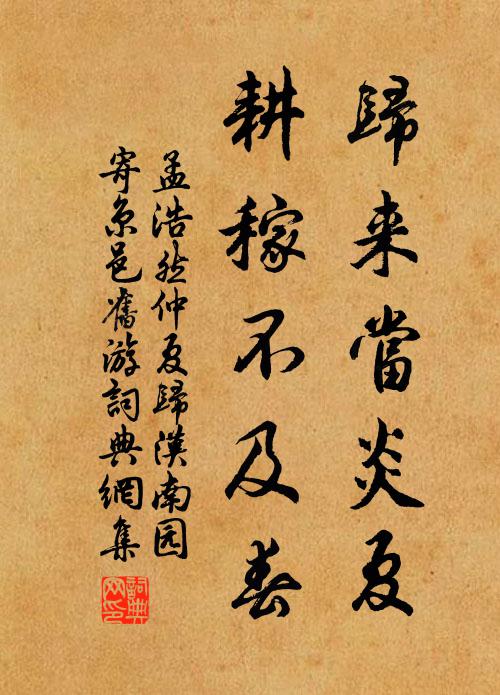 歸来當炎夏
耕稼不及春
孟浩然仲夏歸漢南园
寄京邑舊游詞典網集
詞典
网印